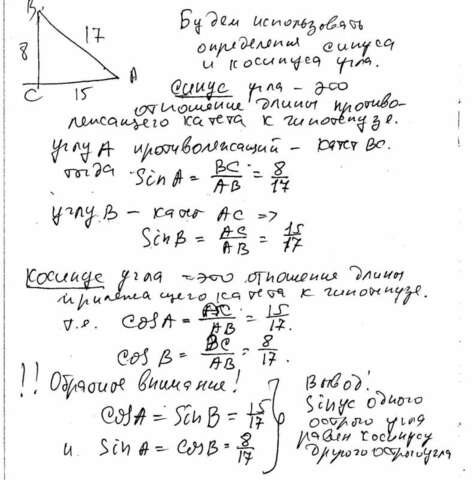 B
17
8
A
C
15
Будем использовать
определения синуса
и косинуса угла.
Синус угла - это
отношение длины противо-
лежащего катета к гипотенузе.
углу A противолежащий - катет BC.
тогда Sin A = BC/AB = 8/17
углу B - катет AC =>
Sin B = AC/AB = 15/17
Косинус угла - это отношение длины
прилежащего катета к гипотенузе.
т.е. Cos A = AC/AB = 15/17.
Cos B = BC/AB = 8/17.
!! Обратите внимание!
Cos A = Sin B = 15/17
и Sin A = Cos B = 8/17
Вывод!
Sinус одного
острого угла
равен косинусу
другого острого угла